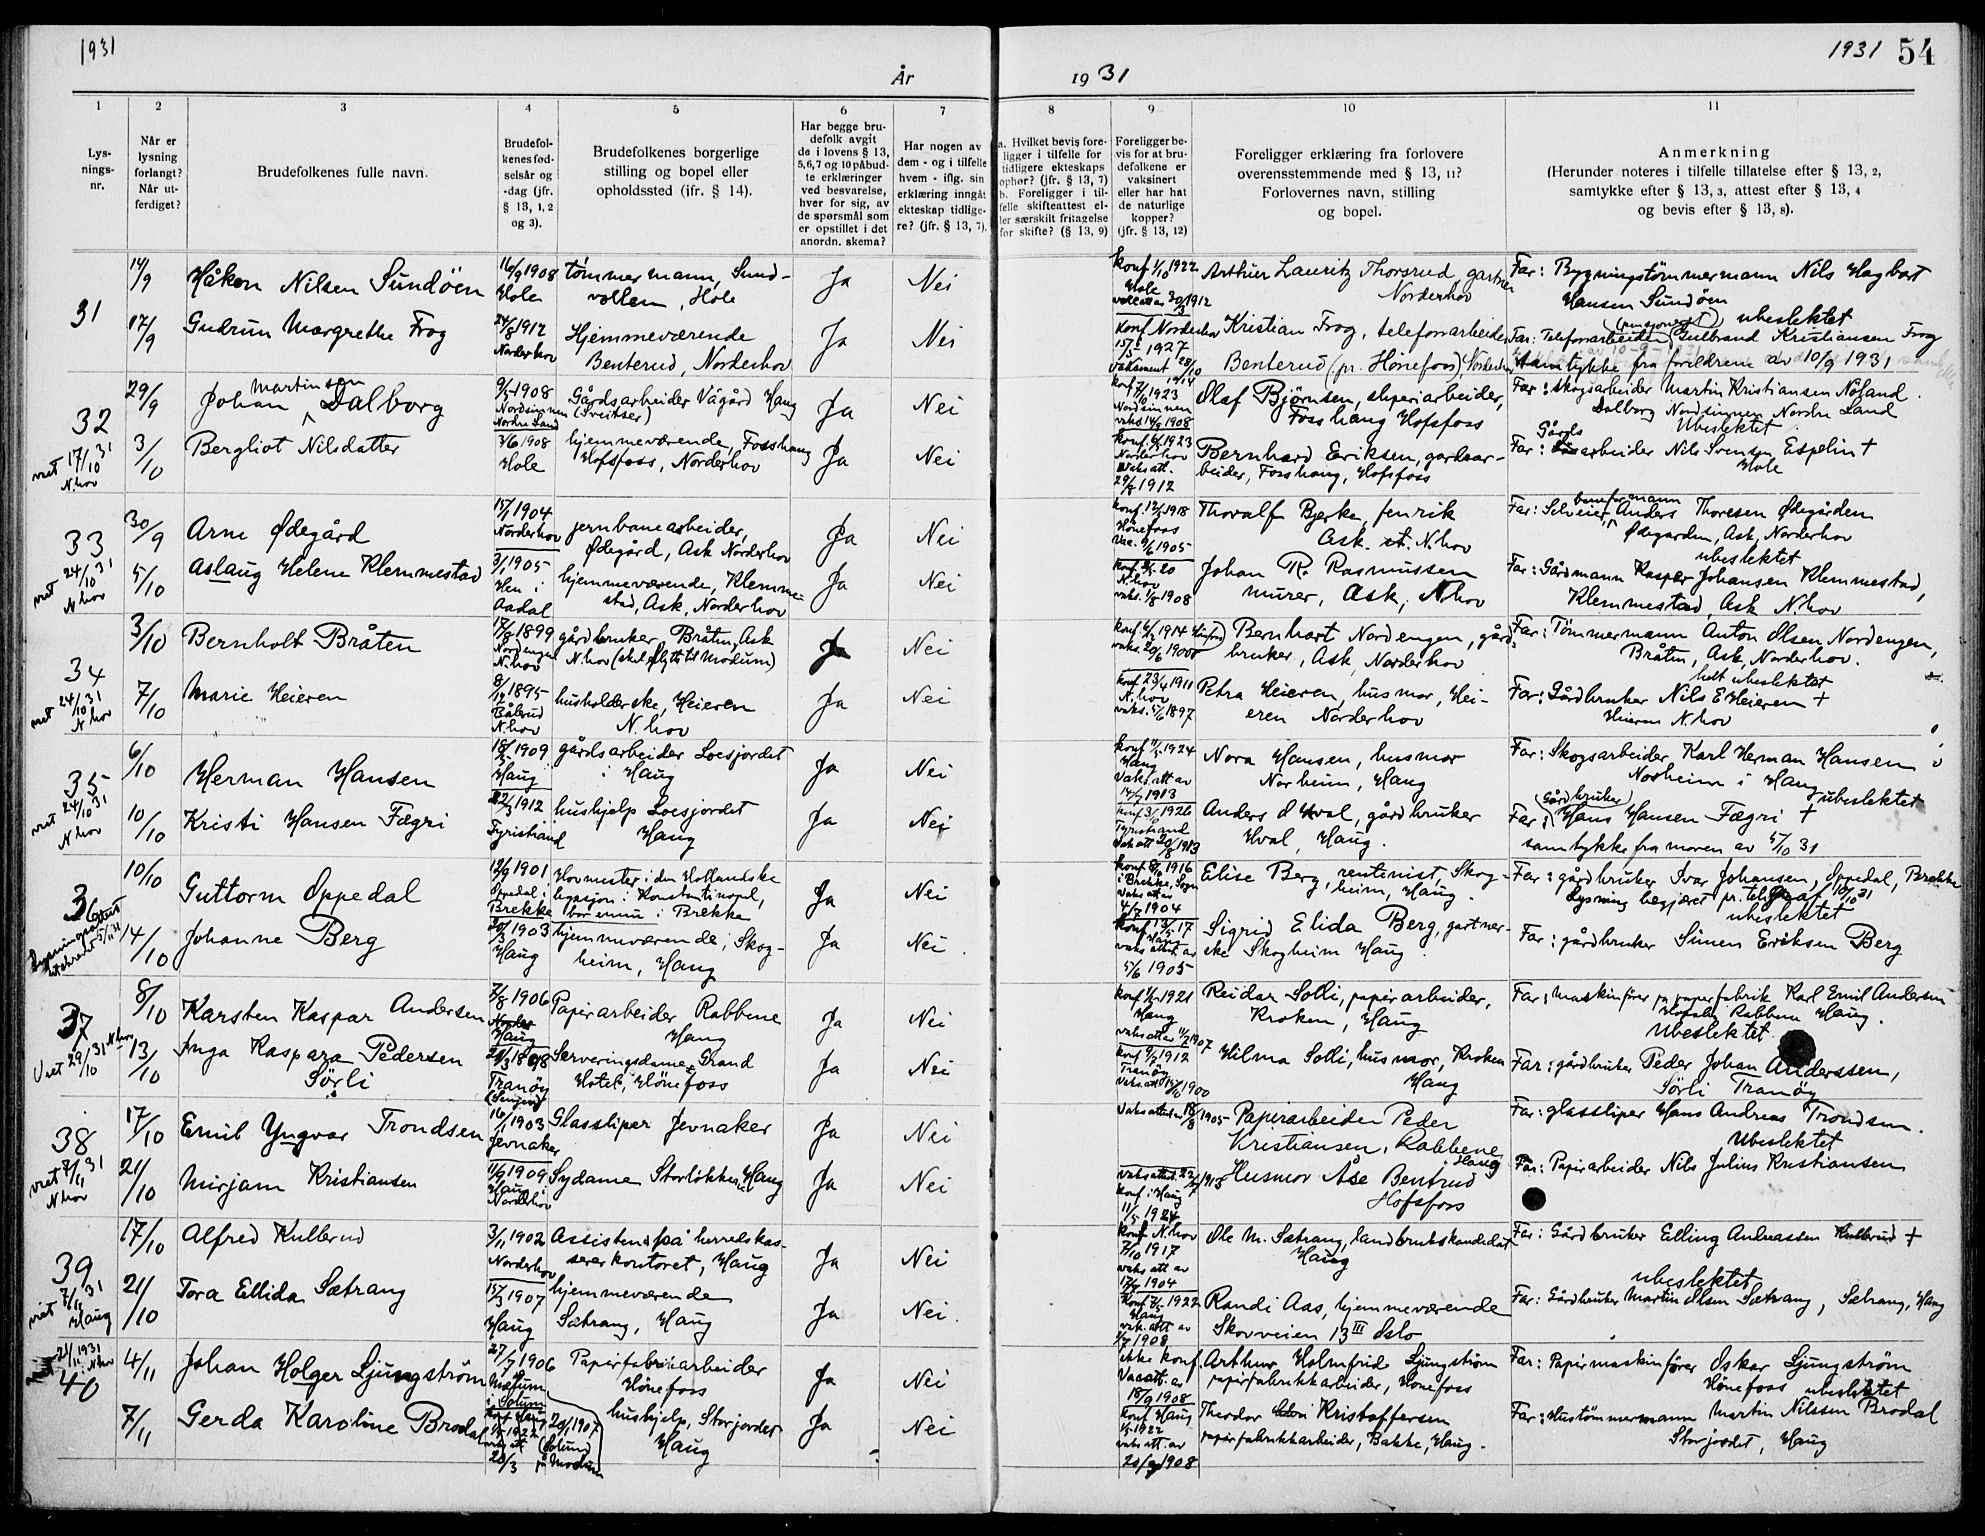 1931
År
1931
1931 54
1
Lys-
nings-
nr.
2
Når er
lysning
forlangt?
Når ut-
ferdiget?
3
Brudefolkenes fulle navn.
4
Brudefol-
kenes fød-
selsår og
-dag (jfr.
§ 13, 1, 2
og 3).
5
Brudefolkenes borgerlige
stilling og bopel eller
opholdssted (jfr. § 14).
6
Har begge bru-
defolk avgit
de i lovens § 13,
5,6,7 og 10 påbud-
te erklæringer
ved besvarelse,
hver for sig, av
de spørsmål som
er opstillet i det
anordn. skema?
7
Har nogen av
dem - og i tilfelle
hvem - iflg. sin
erklæring inngåt
ekteskap tidlige-
re? (jfr. § 13, 7).
8
a. Hvilket bevis fore-
ligger i tilfelle for
tidligere ekteskaps
ophør? (jfr. § 13, 7)
b. Foreligger i til-
felle skifteattest el-
ler særskilt fritagelse
for skifte? (§ 13, 9)
9
Foreligger be-
vis for at bru-
defolkene er
vaksinert
eller har hat
de naturlige
kopper?
(jfr. § 13, 12)
10
Foreligger erklæring fra forlovere
overensstemmende med § 13, 11?
Forlovernes navn, stilling
og bopel.
11
Anmerkning
(Herunder noteres i tilfelle tillatelse efter § 13, 2,
samtykke efter § 13, 3, attest efter § 13, 4
og bevis efter § 13, 8).
31
14/9 Håkon Nilsen Sundöen
16/9 1908
Hole
tømmermann, Sund-
vollen, Hole
Ja Nei
konf 1/10 1922
Hole
Arthur Lauritz Thorsrud gartner
Norderhov
Far: Bygningstömmermann Nils Hagbart
Hansen Sundöen
ubeslektet
17/9 Gudrun Margrethe Frog
24/8 1912
Norderhov
Hjemmeværende
Benterud, Norderhov
Ja Nei
Konf Norderhov
15/5 1927
Kristian Frog, telefonarbeider
Benterud (pr. Hönefoss) Norderhov
(pensjonert)
Far: Telefonarbeider Gulbrand Kristiansen Frog
Samtykke fra foreldrene av 10/9 1931
32
viet 17/10 31
N.hov
29/9 Johan Martinsen Dalborg
9/5 1908
Nordsinnen
Nordre Land
Gårdsarbeider Vågård Haug
(Sveitser)
Ja Nei
konf 7/10 1923
Nordsinnen
vaks 14/9 1908
Olaf Bjørnsen, sliperiarbeider,
Fosshaug Hofsfoss
Far: skogsarbeider Martin Kristiansen Nøland
Dalborg Nordsinnen Nordre Land
Ubeslektet
3/10 Bergliot Nilsdatter
3/6 1908
Hole
hjemmeværende, Fosshaug
Hofsfoss, Norderhov
Ja Nei
Norderhov
Vaks att.
29/8 1912
Bernhard Eriksen, gardsar-
beider, Fosshaug, Hofsfoss
Gårds
Far: arbeider Nils Svensen Espelin +
Hole
33
viet 24/10 31
N hov
30/9 Arne Ødegård
15/1 1904
Norderhov
jernbanearbeider,
Ødegård, Ask Norderhov
Ja Nei
Hönefoss
Vac. 9/6 1905
Thoralf Bjerke, fenrik
Ask. st. N.hov
Far: Selveier, Anders Thoresen Ødegården
Ødegarden, Ask, Norderhov
ubeslektet
5/10 Aslaug Helene Klemmestad
3/1 1905
Hen i
Aadal
hjemmeværende, Klemme-
stad, Ask, Norderhov
Ja Nei
N.hov
vaks. 1/8 1908
Johan R. Rasmussen
murer, Ask, N.hov
Far: Gårdmann Kasper Johansen Klemmestad,
Klemmestad, Ask N.hov
34
viet 24/10 31
N hov
3/10 Bernholt Bråten
17/8 1899
Nordengen
N.hov
gårdbruker, Bråten, Ask
N.hov (skal flytte til Modum)
Ja Nei
vaks. 20/6 1900
Bernhart Nordengen, gård-
bruker, Ask, Norderhov
Far: Tömmermann Anton Olsen Nordengen,
Bråten, Ask, Norderhov.
helt ubeslektet
7/10 Marie Heieren
8/12 1895
N.hov
husholderske, Heieren
N.hov
Ja Nei
konf 23/4 1911
N.hov
vaks. 5/6 1897
Petra Heieren, husmor, Hei-
eren Norderhov
Far: Gårdbruker Nils E Heieren +
Heieren N.hov
35
viet 24/10 31
N hov
6/10 Herman Hansen
18/5 1909
Haug
gårdsarbeider Loesjordet
i Haug
Ja Nei
konf 11/5 1924
Haug
Vaks. att av
14/7 1913
Nora Hansen, husmor
Norheim, Haug
Far: Skogsarbeider Karl Herman Hansen
Norheim i Haug
ubeslektet
10/10 Kristi Hansen Fægri
22/3 1912
Tyristrand
hushjelp Loesjordet
Haug
Ja Nei
Tyristrand
Vak att 20/8 1913
Anders O Hval, gårdbruker
Hval, Haug.
(Gårdbruker)
Far: Hans Hansen Fægri +
samtykke fra moren av 5/10 31
36
10/10 Guttorm Oppedal
12/9 1901
Oppedal i
Brekke
Hovmester i den Hollandske
legasjon i Konstantinopel,
bor ennu i Brekke
Ja Nei
konf 8/10 1916
i Brekke, Sogn
4/7 1904
Elise Berg, rentenist, Skog-
heim, Haug.
Far: gårdbruker Ivar Johansen, Oppedal, Brekke
Lysning begjæret pr. telegraf 10/10 31
ubeslektet
14/10 Johanne Berg
20/3 1903
Haug
hjemmeværende, Skog-
heim, Haug
Ja Nei
vaks attest av
5/6 1905
Sigrid Elida Berg, gartner-
ske Skogheim Haug.
Far: gårdbruker Simen Eriksen Berg
37
Viet 29/10 31 N hov
8/10 Karsten Kaspar Andersen
7/8 1906
Haug
Papirarbeider Rabbene
Haug
Ja Nei
Haug
Reidar Solli, papirarbeider,
Kroken, Haug
Far: maskinfører på papirfabrik Karl Emil Andersen
Rabbene Haug.
Ubeslektet
13/10 Inga Kaspara Pedersen
Sørli
21/3 1898
Tranöy
(Senjen)
Serveringsdame, Grand
Hotel, Hönefoss
Ja Nei
Tranöy
Hilma Solli, husmor, Kroken
Haug
Far: gårdbruker Peder Johan Anderssen,
Sörli Tranöy
38
viet 7/11 31
N hov
17/10 Emil Yngvar Trondsen
16/1 1903
Jevnaker
Glassliper Jevnaker
Ja Nei
Papirarbeider Peder
Kristiansen, Rabbene
i Haug
Far: glassliper Hans Andreas Trondsen.
Ubeslektet
21/10 Mirjam Kristiansen
11/9 1909
Haug i
Norderhov
Sydame Storlökken Haug
Ja Nei
konf. i Haug
11/5 1924
Husmor Åse Bentrud
Hofsfoss
Far: Papirarbeider Nils Julius Kristiansen
39
viet 7/11 31
Haug
17/10 Alfred Kullerud
3/11 1902
Norderhov
Assistent på herredskas-
sererkontoret, Haug
Ja Nei
konf N.hov
7/10 1917
vaks att av
Ole M. Sætrang, landbrukskandidat
Haug
Far: Gårdbruker Elling Andreassen Kullerud +
ubeslektet
21/10 Tora Ellida Sætrang
15/3 1907
Haug
hjemmeværende
Sætrang, Haug
Ja Nei.
Haug
vak. att av
1/7 1908
Randi Aas, hjemmeværende
Skovveien 13 III Oslo
Far: Gårdbruker Martin Olsen Sætrang, Sætrang, Haug
40
21/11 1931
N.hov
4/11 Johan Holger Ljungström
27/7 1906
i Solum
Papirfabrikarbeider
Hönefoss
Ja Nei
ikke konf.
18/9 1908
Arthur Holmfride Ljungstrøm
papirfabrikkarbeider, Hönefoss
Far: Papirmaskinfører Oskar Ljungström
Hönefoss ubeslektet
7/11 Gerda Karoline Brodal
20/1 1907
på Modum
hushjelp, Storjordet
Haug
Ja Nei
Konf. Haug
vaks att. av
Theodor Kristoffersen
papirfabrikkarbeider, Bakke, Haug.
Far: Hustömmermann Martin Nilssen Brodal
Storjordet, Haug